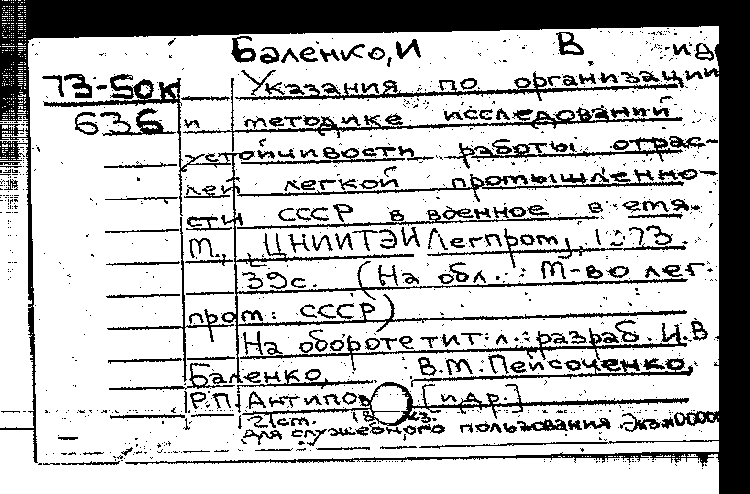 Баленко, И В и др
73-50к Указания по организации
636 и методике исследований
устойчивости работы отрас-
лей легкой промышленно-
сти СССР в военное
М., ЦНИИТЭИ Легпром, 1973.
39с. (На обл.: М-во лег.
пром. СССР)
На обороте тит. л.: разраб. И.В.
Баленко, В.М. Пейсоченко,
Р.П. Антипов [и др.]
21ст.
Для служебного пользования. Экз №0000